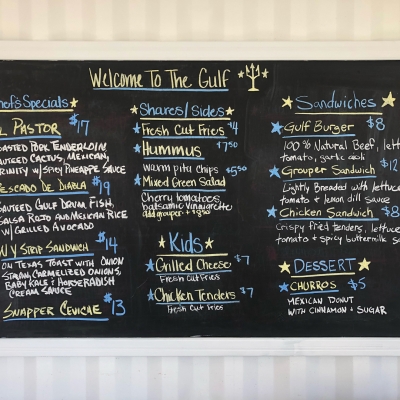 Welcome To The Gulf
Chef's Specials
El Pastor $17
Roasted Pork Tenderloin
Sauteed Cactus, Mexican,
Trinity w/ Spicy Pineapple Sauce
Pescado De Diabla $19
Sauteed Gulf Drum Fish,
Salsa Rojo and Mexican Rice
w/ Grilled Avocado
NY Strip Sandwich $14
on Texas Toast with Onion
Straws, Caramelized Onions,
Baby Kale & Horseradish
Cream Sauce
Snapper Ceviche $13
Shares/Sides
Fresh Cut Fries $4
Hummus $7.50
Warm pita Chips
Mixed Green Salad $5.50
Cherry tomatoes,
balsamic vinaigrette
add grouper + $8.50
Kids
Grilled Cheese $7
Fresh Cut Fries
Chicken Tenders $7
Fresh Cut Fries
Sandwiches
Gulf Burger $8
100% Natural Beef,
tomato, garlic aioli
Grouper Sandwich $12
Lightly Breaded with
tomato + lemon dill sauce
Chicken Sandwich $8
Crispy fried tenders,
tomato + spicy buttermilk
Dessert
Churros $5
Mexican Donut
with Cinnamon & Sugar